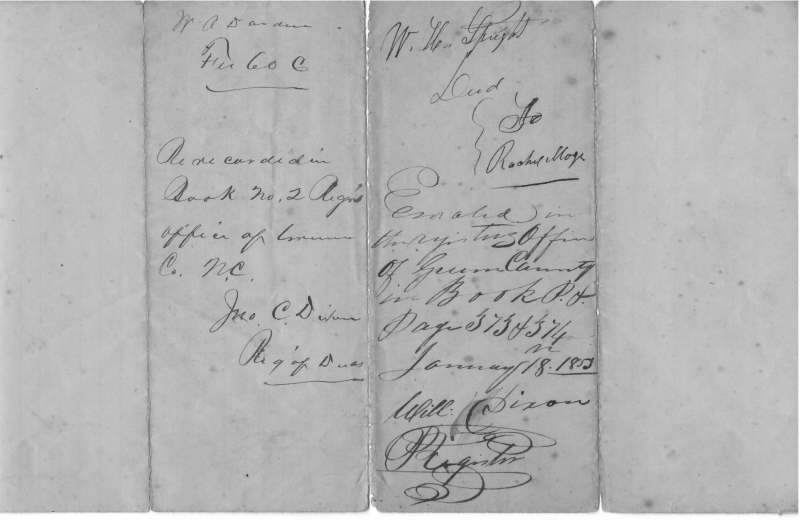 W A Darden
Fee 60 C
Re recorded in
Book No. 2 Reg's
office of Greene
Co. N.C.
Jno. C. Dixon
Reg' of Deeds
W. H. Speight
Deed
To
Rachel Moye
Enroled in
the registers Office
of Green County
in Book
Page 373 & 374
January 18th 1853
Will: Dixon
Register